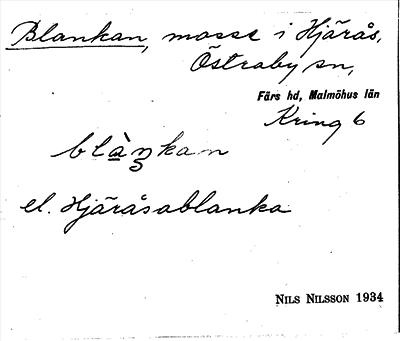 Blankan, mosse i Hjärås,
Östraby sn,
Färs hd, Malmöhus län
Kring 6
blàŋkan
el. Hjäråsablanka
NILS NILSSON 1934